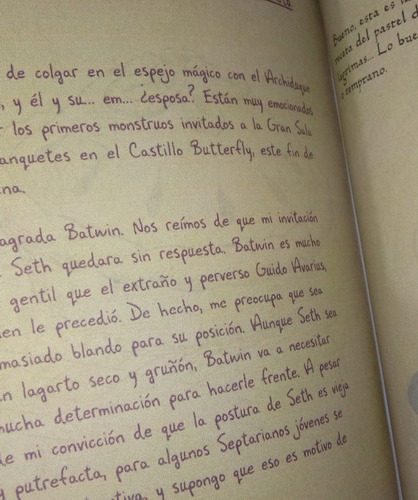 de colgar en el espejo mágico con el Archiduque
, y él y su... em... ¿esposa? Están muy emocionados
los primeros monstruos invitados a la Gran Sala
anquetes en el Castillo Butterfly, este fin de
na.
agrada Batwin. Nos reímos de que mi invitación
Seth quedara sin respuesta. Batwin es mucho
gentil que el extraño y perverso Guido Avarius,
ien le precedió. De hecho, me preocupa que sea
masiado blando para su posición. Aunque Seth sea
n lagarto seco y gruñón, Batwin va a necesitar
mucha determinación para hacerle frente. A pesar
de mi convicción de que la postura de Seth es vieja
y putrefacta, para algunos Septarianos jóvenes se
tiva, y supongo que eso es motivo de
Bueno, esta es
del pastel d
lágrimas... Lo bue
temprano.